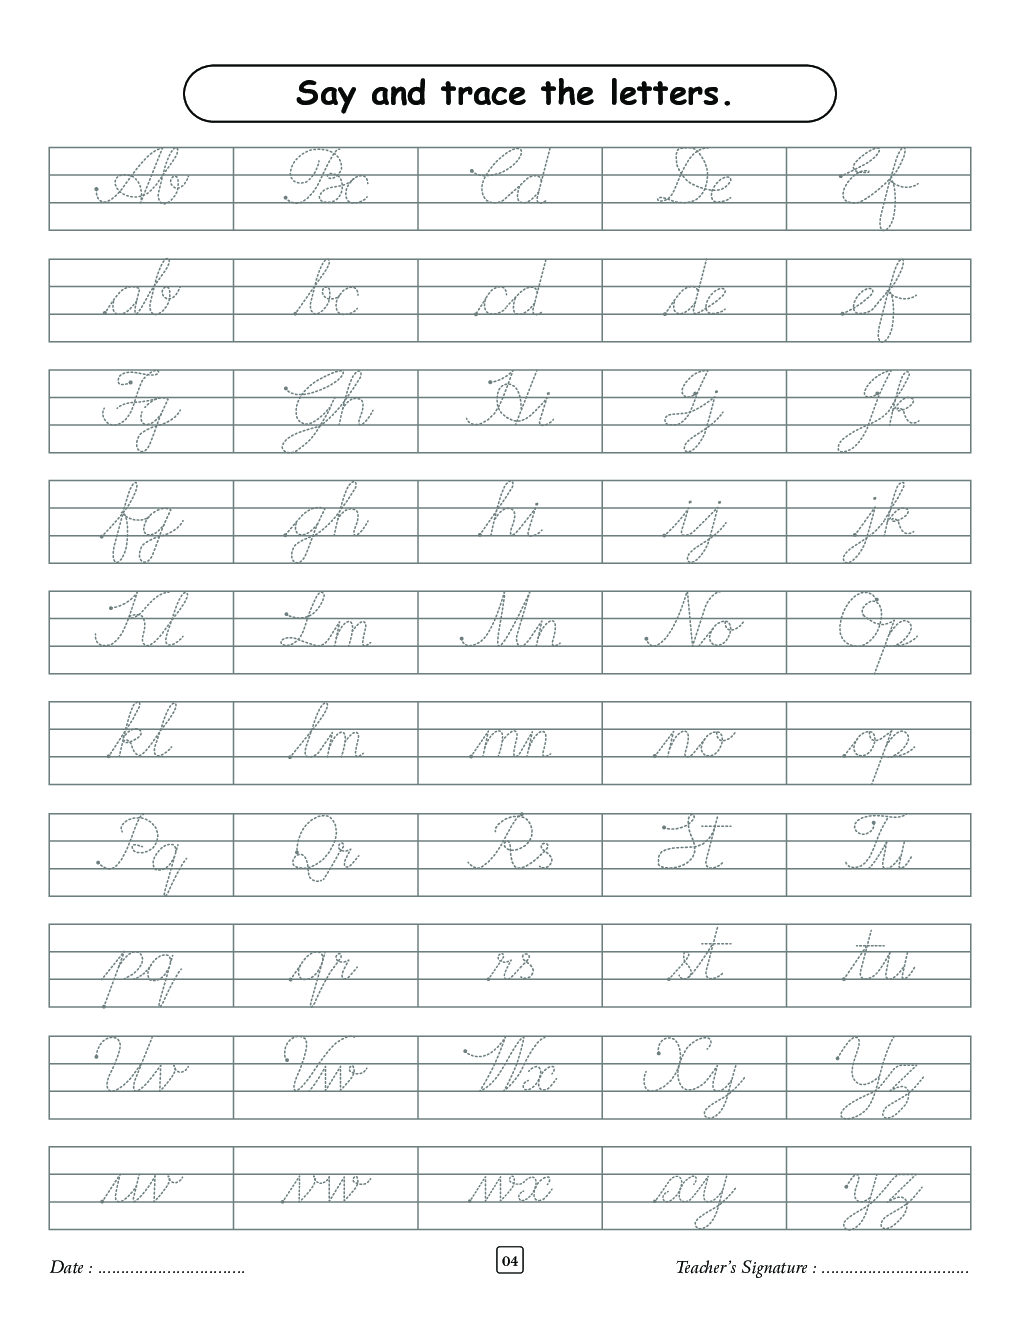 Say and trace the letters.
Ab Bc Cd De Ef
ab bc cd de ef
Fg Gh Hi Ij Jk
fg gh hi ij jk
Kl Lm Mn No Op
kl lm mn no op
Pq Qr Rs St Tu
pq qr rs st tu
Uv Vw Wx Xy Yz
uv vw wx xy yz
Date : ................................ 04 Teacher's Signature : ................................